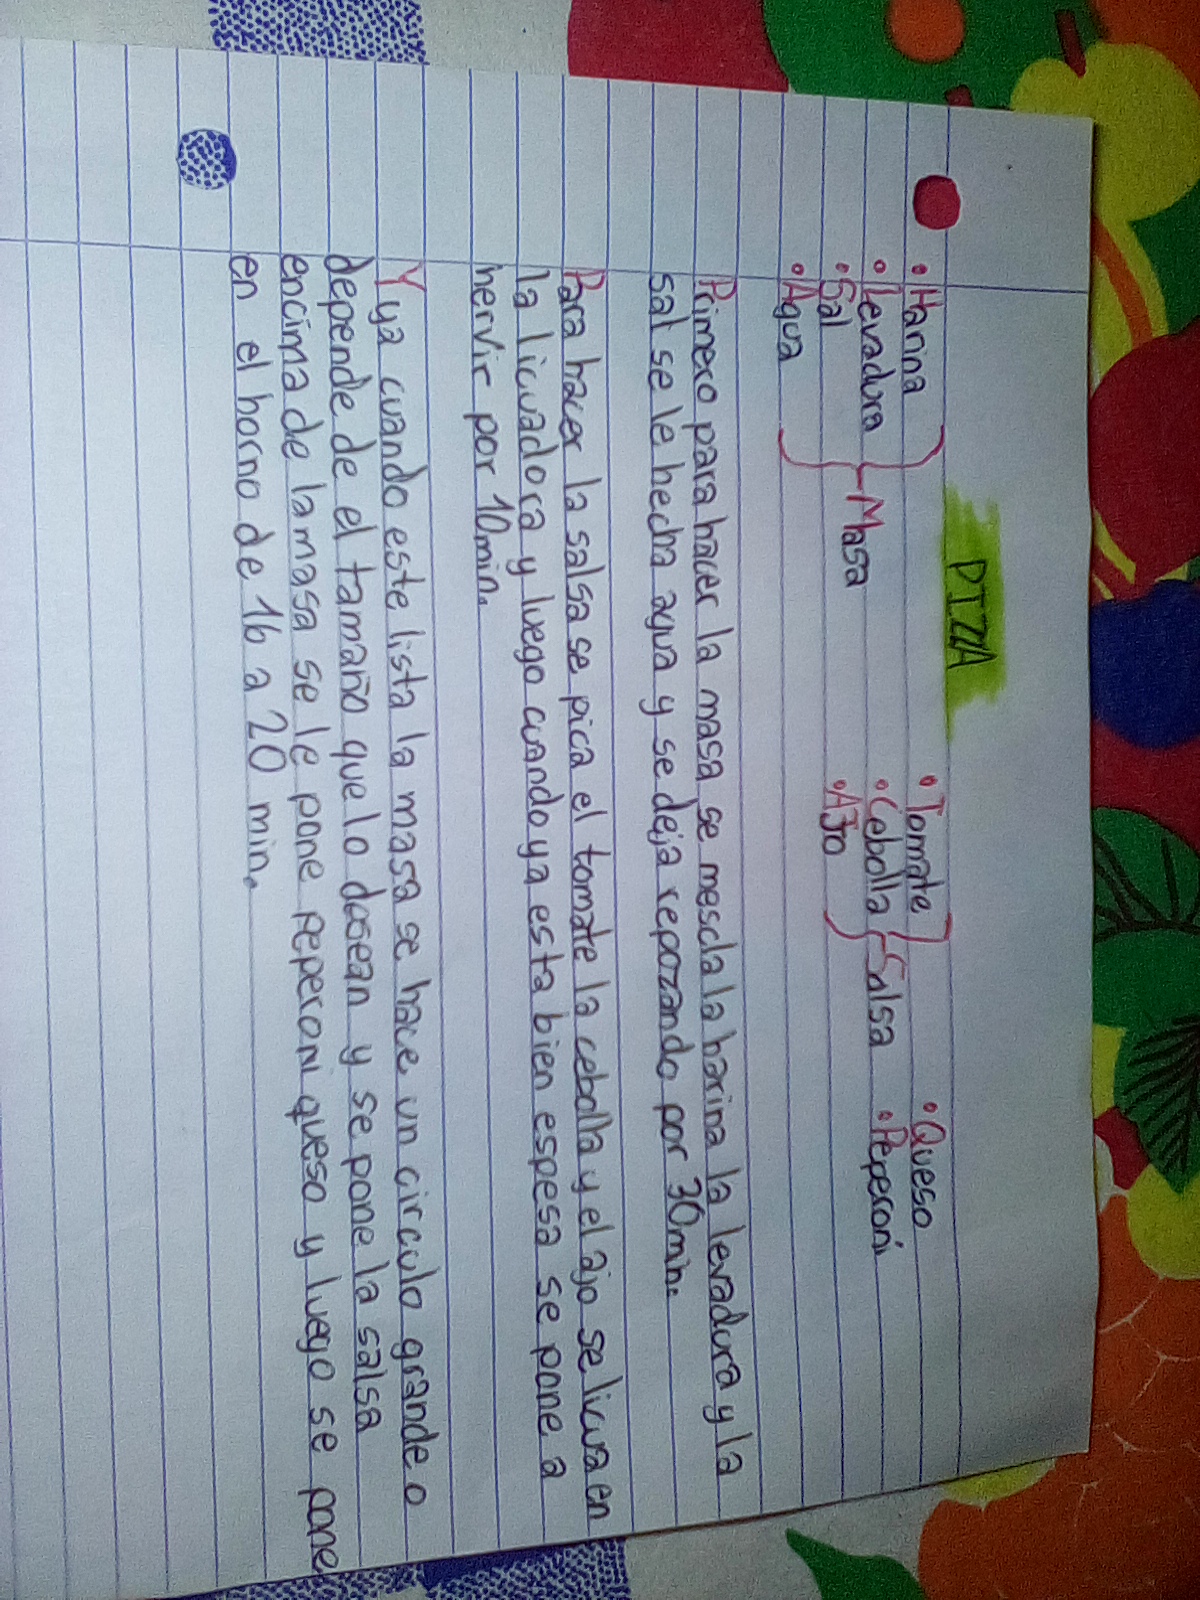 PIZZA
• Harina
• Levadura
• Sal
• Agua
Masa
• Tomate
• Cebolla
• AJo
Salsa
• Queso
• Peperoni
Primero para hacer la masa se mescla la harina la levadura y la
sal se le hecha agua y se deja repozando por 30min.
Para hacer la salsa se pica el tomate la cebolla y el ajo se licua en
la licuadora y luego cuando ya esta bien espesa se pone a
hervir por 10min.
Y ya cuando este lista la masa se hace un circulo grande o
depende de el tamaño que lo dosean y se pone la salsa
encima de la masa se le pone peperoni queso y luego se pone
en el horno de 16 a 20 min.